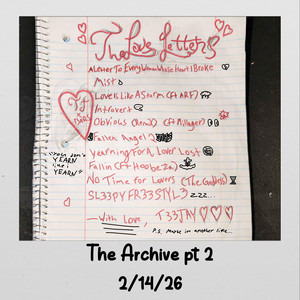 The Love Letters
A Letter To Every Woman Whose Heart I Broke
Mist
Love Is Like A Storm (Ft ARF)
Introvert
Obvious (Rmx) (Ft Millager)
Fallen Angel 2
Yearning For A Lover Lost
Fallin (Ft Hoobeza)
No Time for Lovers (The Goddess)
SL33PY FR33STYL3 zzz...
With Love, T33JAY
P.S. Maybe in another time...
"Y'all don't
YEARN
like I
YEARN"
The Archive pt 2
2/14/26